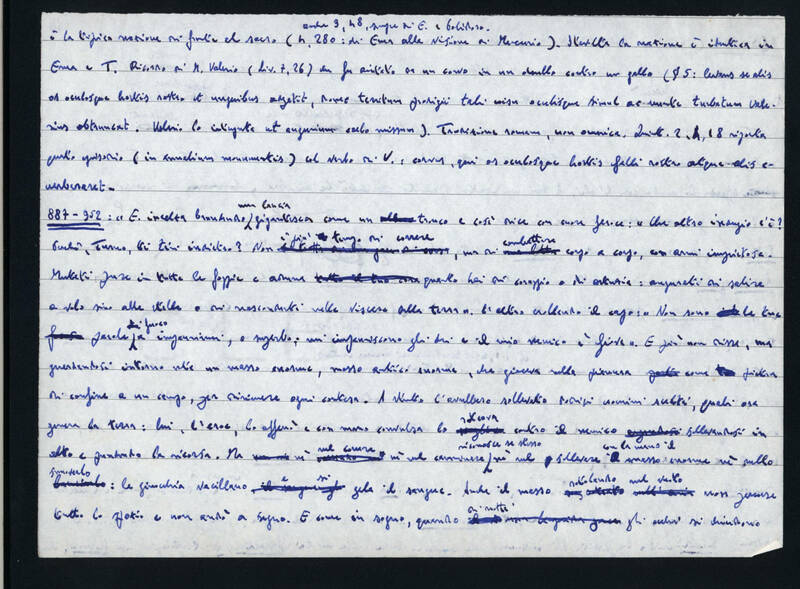 anche 3, 48, sempre di E. e Polidoro.
è la tipica reazione di fronte al sacro (4, 280: di Enea alla visione di Mercurio). Stavolta la reazione è identica in
Enea e T. Ricorso di M. Valerio (Liv. 7, 26) che fu aiutato da un corvo in un duello contro un gallo (§ 5: levans se alis
os oculosque hostis rostro et unguibus appetit, donec territum prodigii talis visu oculisque simul ac mente turbatum Vale-
rius obtruncat. Valerio lo interpreta ut augurium caelo missum). Tradizione romana, non omerica. Quint. 2, 4, 18 riporta
questo episodio (in annalium monumentis) col verbo di V.: corvus, qui os oculosque hostis Galli rostro atque alis e-
verberaret.
887-952: « E. incalza brandendo una lancia gigantesca come un tronco e così dice con cuore feroce: « Che altro indugio c'è?
Perché, Turno, ti tiri indietro? Non è più tempo di correre, ma di combattere corpo a corpo, con armi impietose.
Mutati pure in tutte le foggie e aduna quanto hai di coraggio o di astuzia: augurati di salire
a volo sino alle stelle o di nasconderti nelle viscere della terra ». L'altro crollando il capo: « Non sono le tue
parole di fuoco a impaurirmi, o superbo; mi impauriscono gli dei e il mio nemico è Giove ». E più non disse, ma
guardandosi intorno vide un masso enorme, masso antico enorme, che giaceva nella pianura come pietra
di confine a un campo, per dirimere ogni contesa. A stento l'avrebbero sollevato dodici uomini scelti, quali ora
genera la terra: lui, l'eroe, lo afferrò e con mano convulsa lo scagliava contro il nemico sollevandosi in
alto e prendendo la rincorsa. Ma né nel correre né nel camminare riconosce se stesso, né nel sollevare con la mano il masso enorme né nello
spostarlo: le ginocchia vacillano, e si gela il sangue. Anche il masso rotolando nel vuoto non percorse
tutto lo spazio e non andò a segno. E come in sogno, quando di notte gli occhi si chiudono